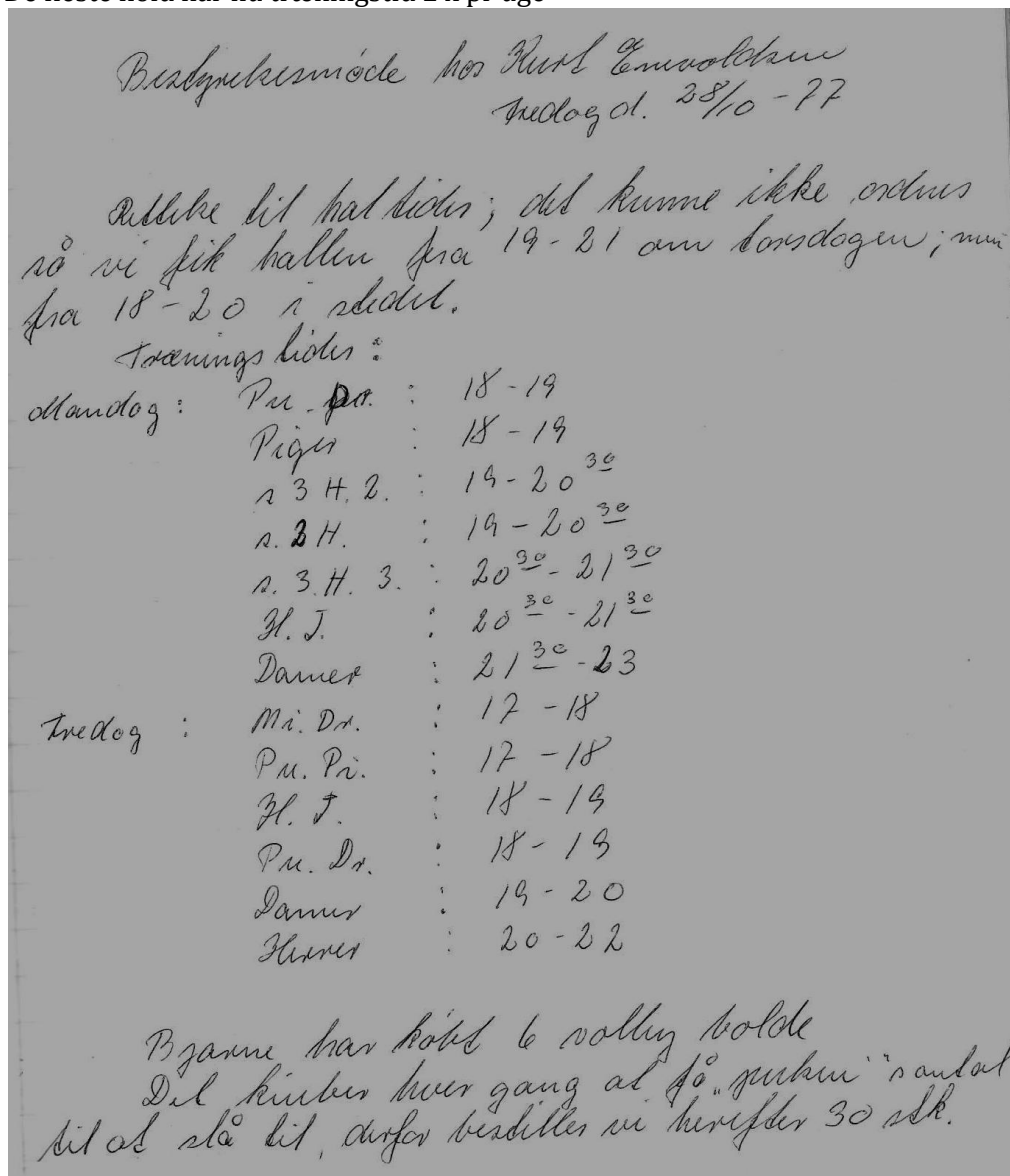 De fleste hold har nu træningstid 2 x pr uge
Bestyrelsesmøde hos Kurt Enevoldsen
fredag d. 28/10 - 77
Rettelse til haltider; det kunne ikke ordnes
så vi fik hallen fra 19-21 om torsdagen; men
fra 18-20 i stedet.
Trænings tider:
Mandag: Pu. Dr. : 18-19
Piger : 18-19
s 3 H. 2. : 19-20 30
s. 2 H. : 19-20 30
s. 3. H. 3. : 20 30 - 21 30
H. J. : 20 30 - 21 30
Damer : 21 30 - 23
Fredag : Mi. Dr. : 17-18
Pu. Pi. : 17-18
H. J. : 18-19
Pu. Dr. : 18-19
Damer : 19-20
Herrer : 20-22
Bjarne har købt 6 volley bolde
Det kniber hver gang at få antal
til at slå til, derfor bestiller vi herefter 30 stk.